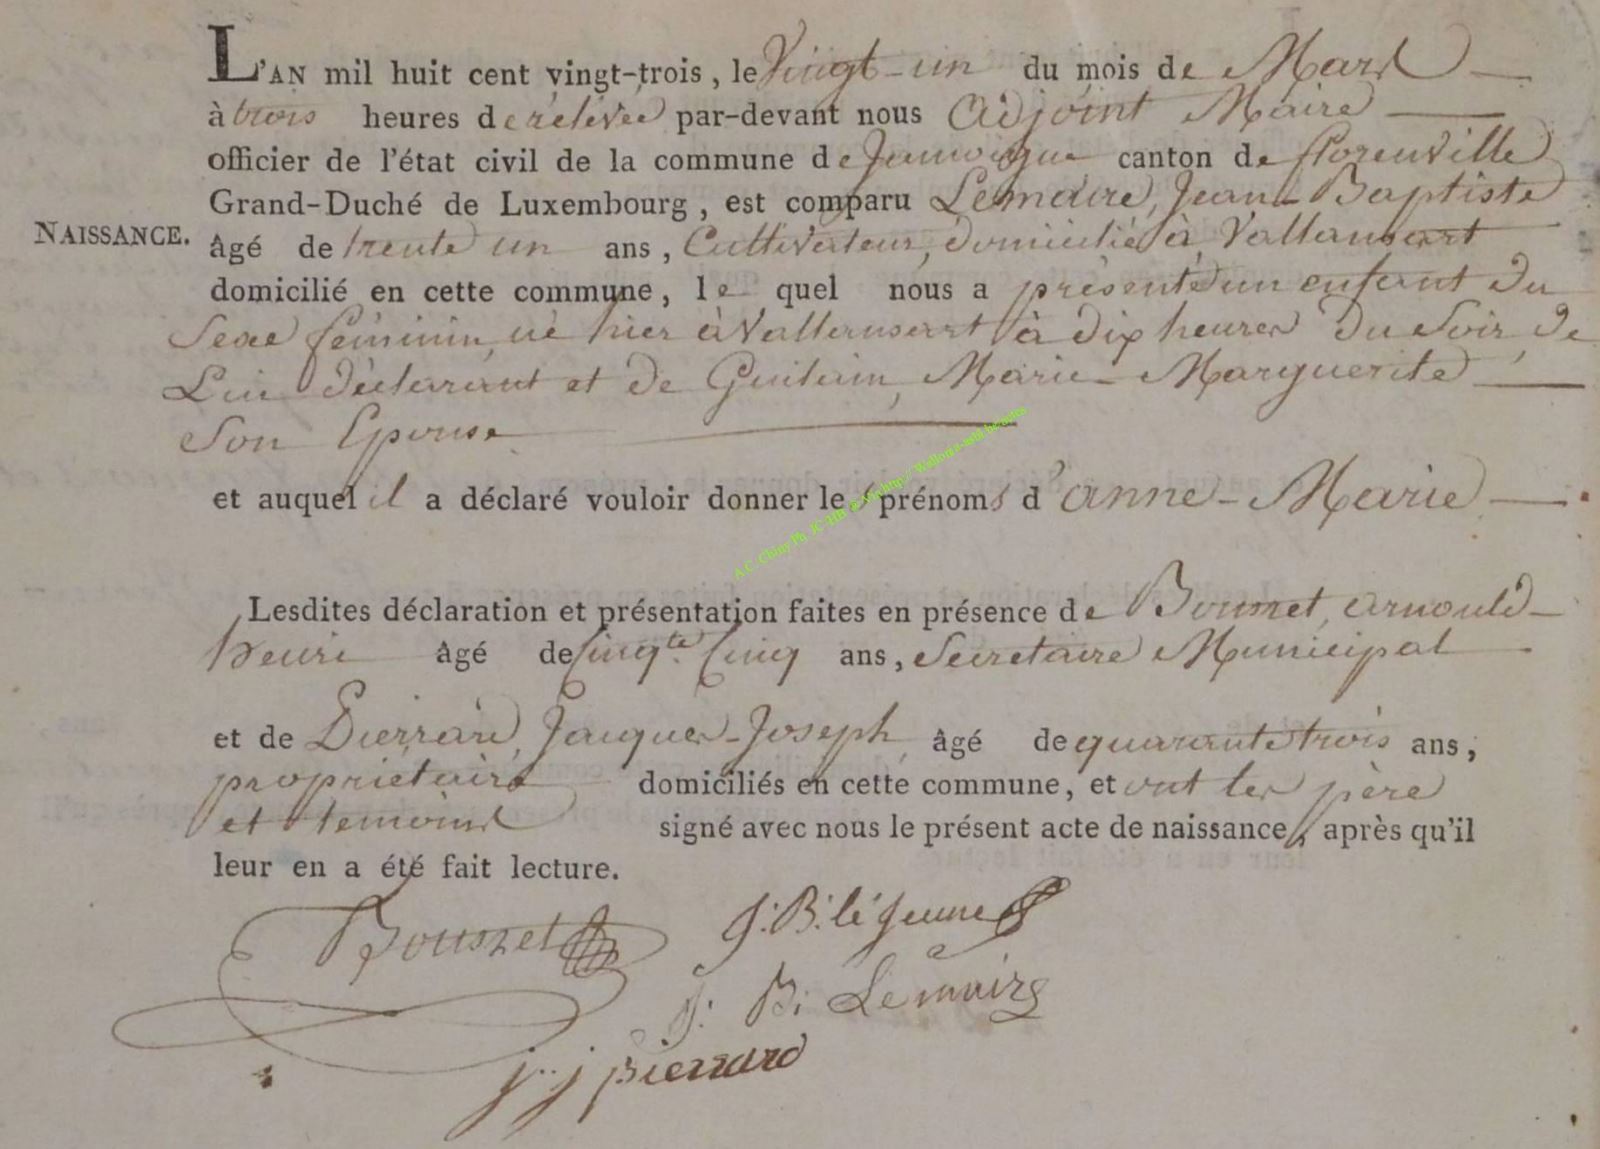 L'AN mil huit cent vingt-trois, le Vingt-un du mois de Mars
à trois heures de relevée par-devant nous Adjoint Maire
officier de l'état civil de la commune de Jamoigne canton de florenville
Grand-Duché de Luxembourg, est comparu Lemaire, Jean-Baptiste
NAISSANCE.
âgé de trente un ans, Cultivateur, domicilié à Vallansart
domicilié en cette commune, le quel nous a présenté un enfant du
Sexe féminin, né hier à Vallansart à dix heures du Soir, de
Lui déclarant et de Guilain, Marie-Marguerite
Son Epouse
et auquel il a déclaré vouloir donner les prénoms d'anne-Marie
Lesdites déclaration et présentation faites en présence de Bousset, arnould-
henri âgé de Cinqte Cinq ans, Secretaire Municipal
et de Pierrard, Jacques-Joseph âgé de quarante trois ans,
propriétaire domiciliés en cette commune, et ont les père
et temoins signé avec nous le présent acte de naissance, après qu'il
leur en a été fait lecture.
Bousset J: B: le Jeune
J: B: Lemaire
j.. j pierrard
A.C. Chiny Ph. JC HB